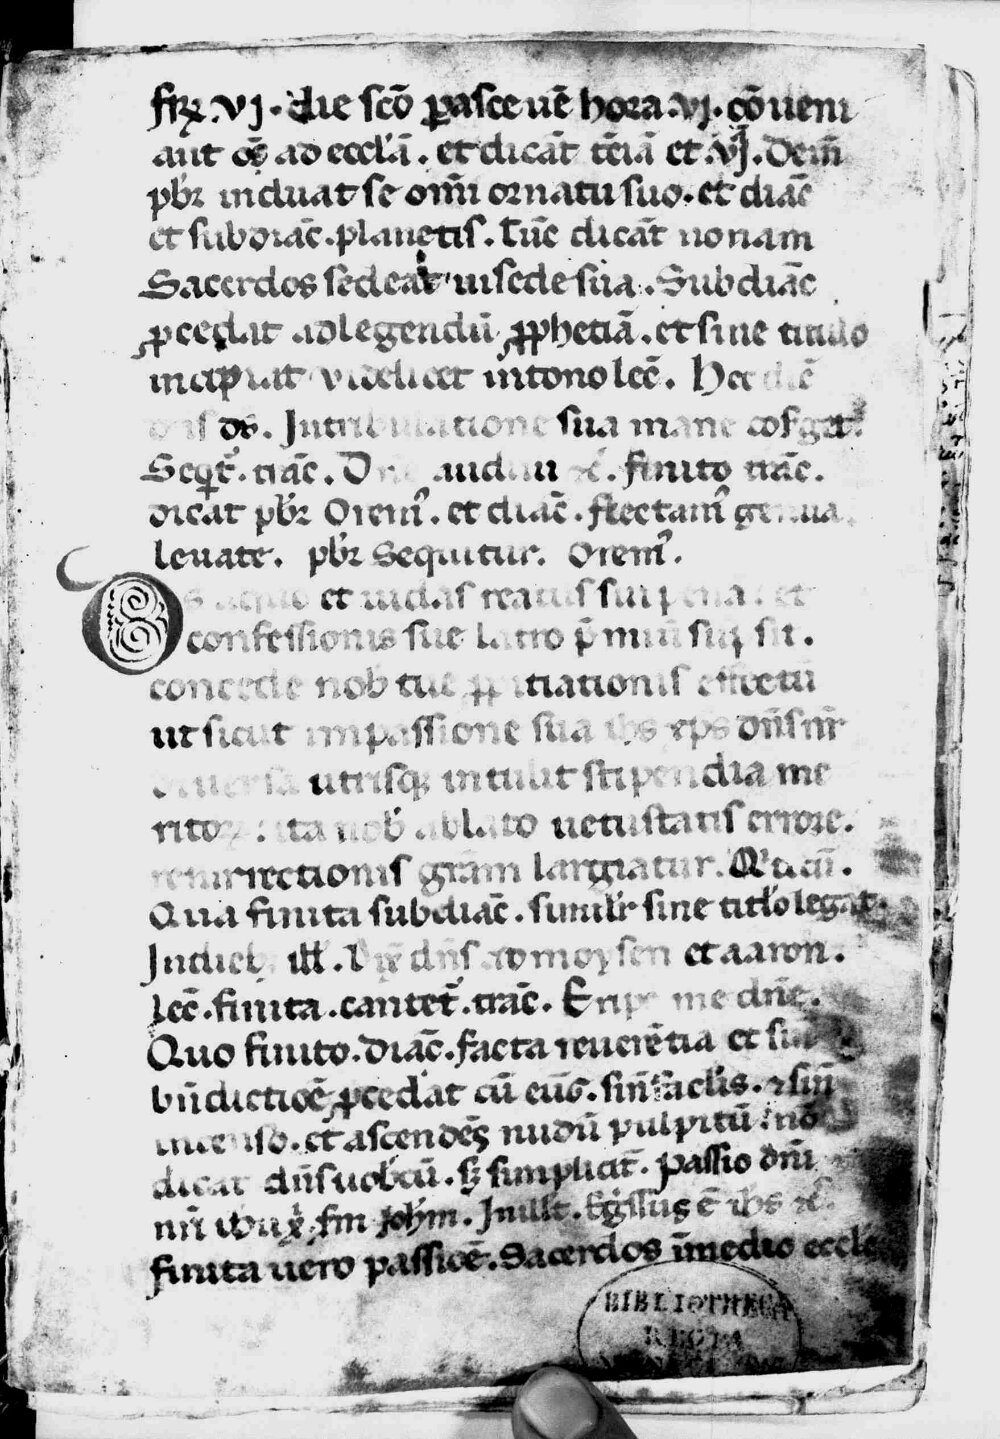 frꝝ .vj. die scō ꝑasceuē hora .vj. cōueni
ant oēs ad eccłā . et dicāt t̄ciā et .vj. Dem̄
pbr̄ induat se om̄i ornatu suo . et diac̄
et subdiac̄ . planetis . Tūc dicāt nonam
Sacerdos sedeat in sede sua . Subdiac̄
ꝓcedat ad legendū ꝓphetiā . et sine titulo
incipiat videlicet in tono lec̄ . Hec dic̄
ds̄ . In tribulatione sua mane cōsꝰget
Seqt̄ . trac̄ . Dn̄e audiui . finito trac̄ .
dicat pbr̄ Oremꝰ . et diac̄ . flectamꝰ genua .
leuate . pbr̄ Sequitur . Oremꝰ .
DS a quo et iudas reatus sui pena . et
confessionis sue latro p̄miū sūp sit .
concede nob̄ tue ꝓpitiationis effectū
ut sicut in passione sua ihs xp̄s dn̄s nr̄
diuersa utrisqꝫ intulit stipendia me
ritoꝝ . ita nob̄ ablato uetustatis errore .
resurrectionis grām largiatur . Q' tecū .
Qua finita subdiac̄ . simil'r sine titlo legat .
In dieb; ill̄ . Dix̄ dn̄s ad moysen et aaron .
Lec̄ . finita . cantet̄ . trac̄ . Eripe me dn̄e .
Quo finito . diac̄ . facta reuerētia et sin̄
bn̄dictioē ꝓcedat cū euḡ . sin̄ faclis . et sin̄
incenso . et ascendēs nudū pulpitū . nō
dicat dn̄s uob̄cū . sꝫ simplicit̄ . Passio dn̄i
nr̄i ihu x̄ . sm̄ Joh̄m . In ill̄t . Egssus ē ihs
finita uero passioē . Sacerdos ī medio eccłe
BIBLIOTHECA
REGIA